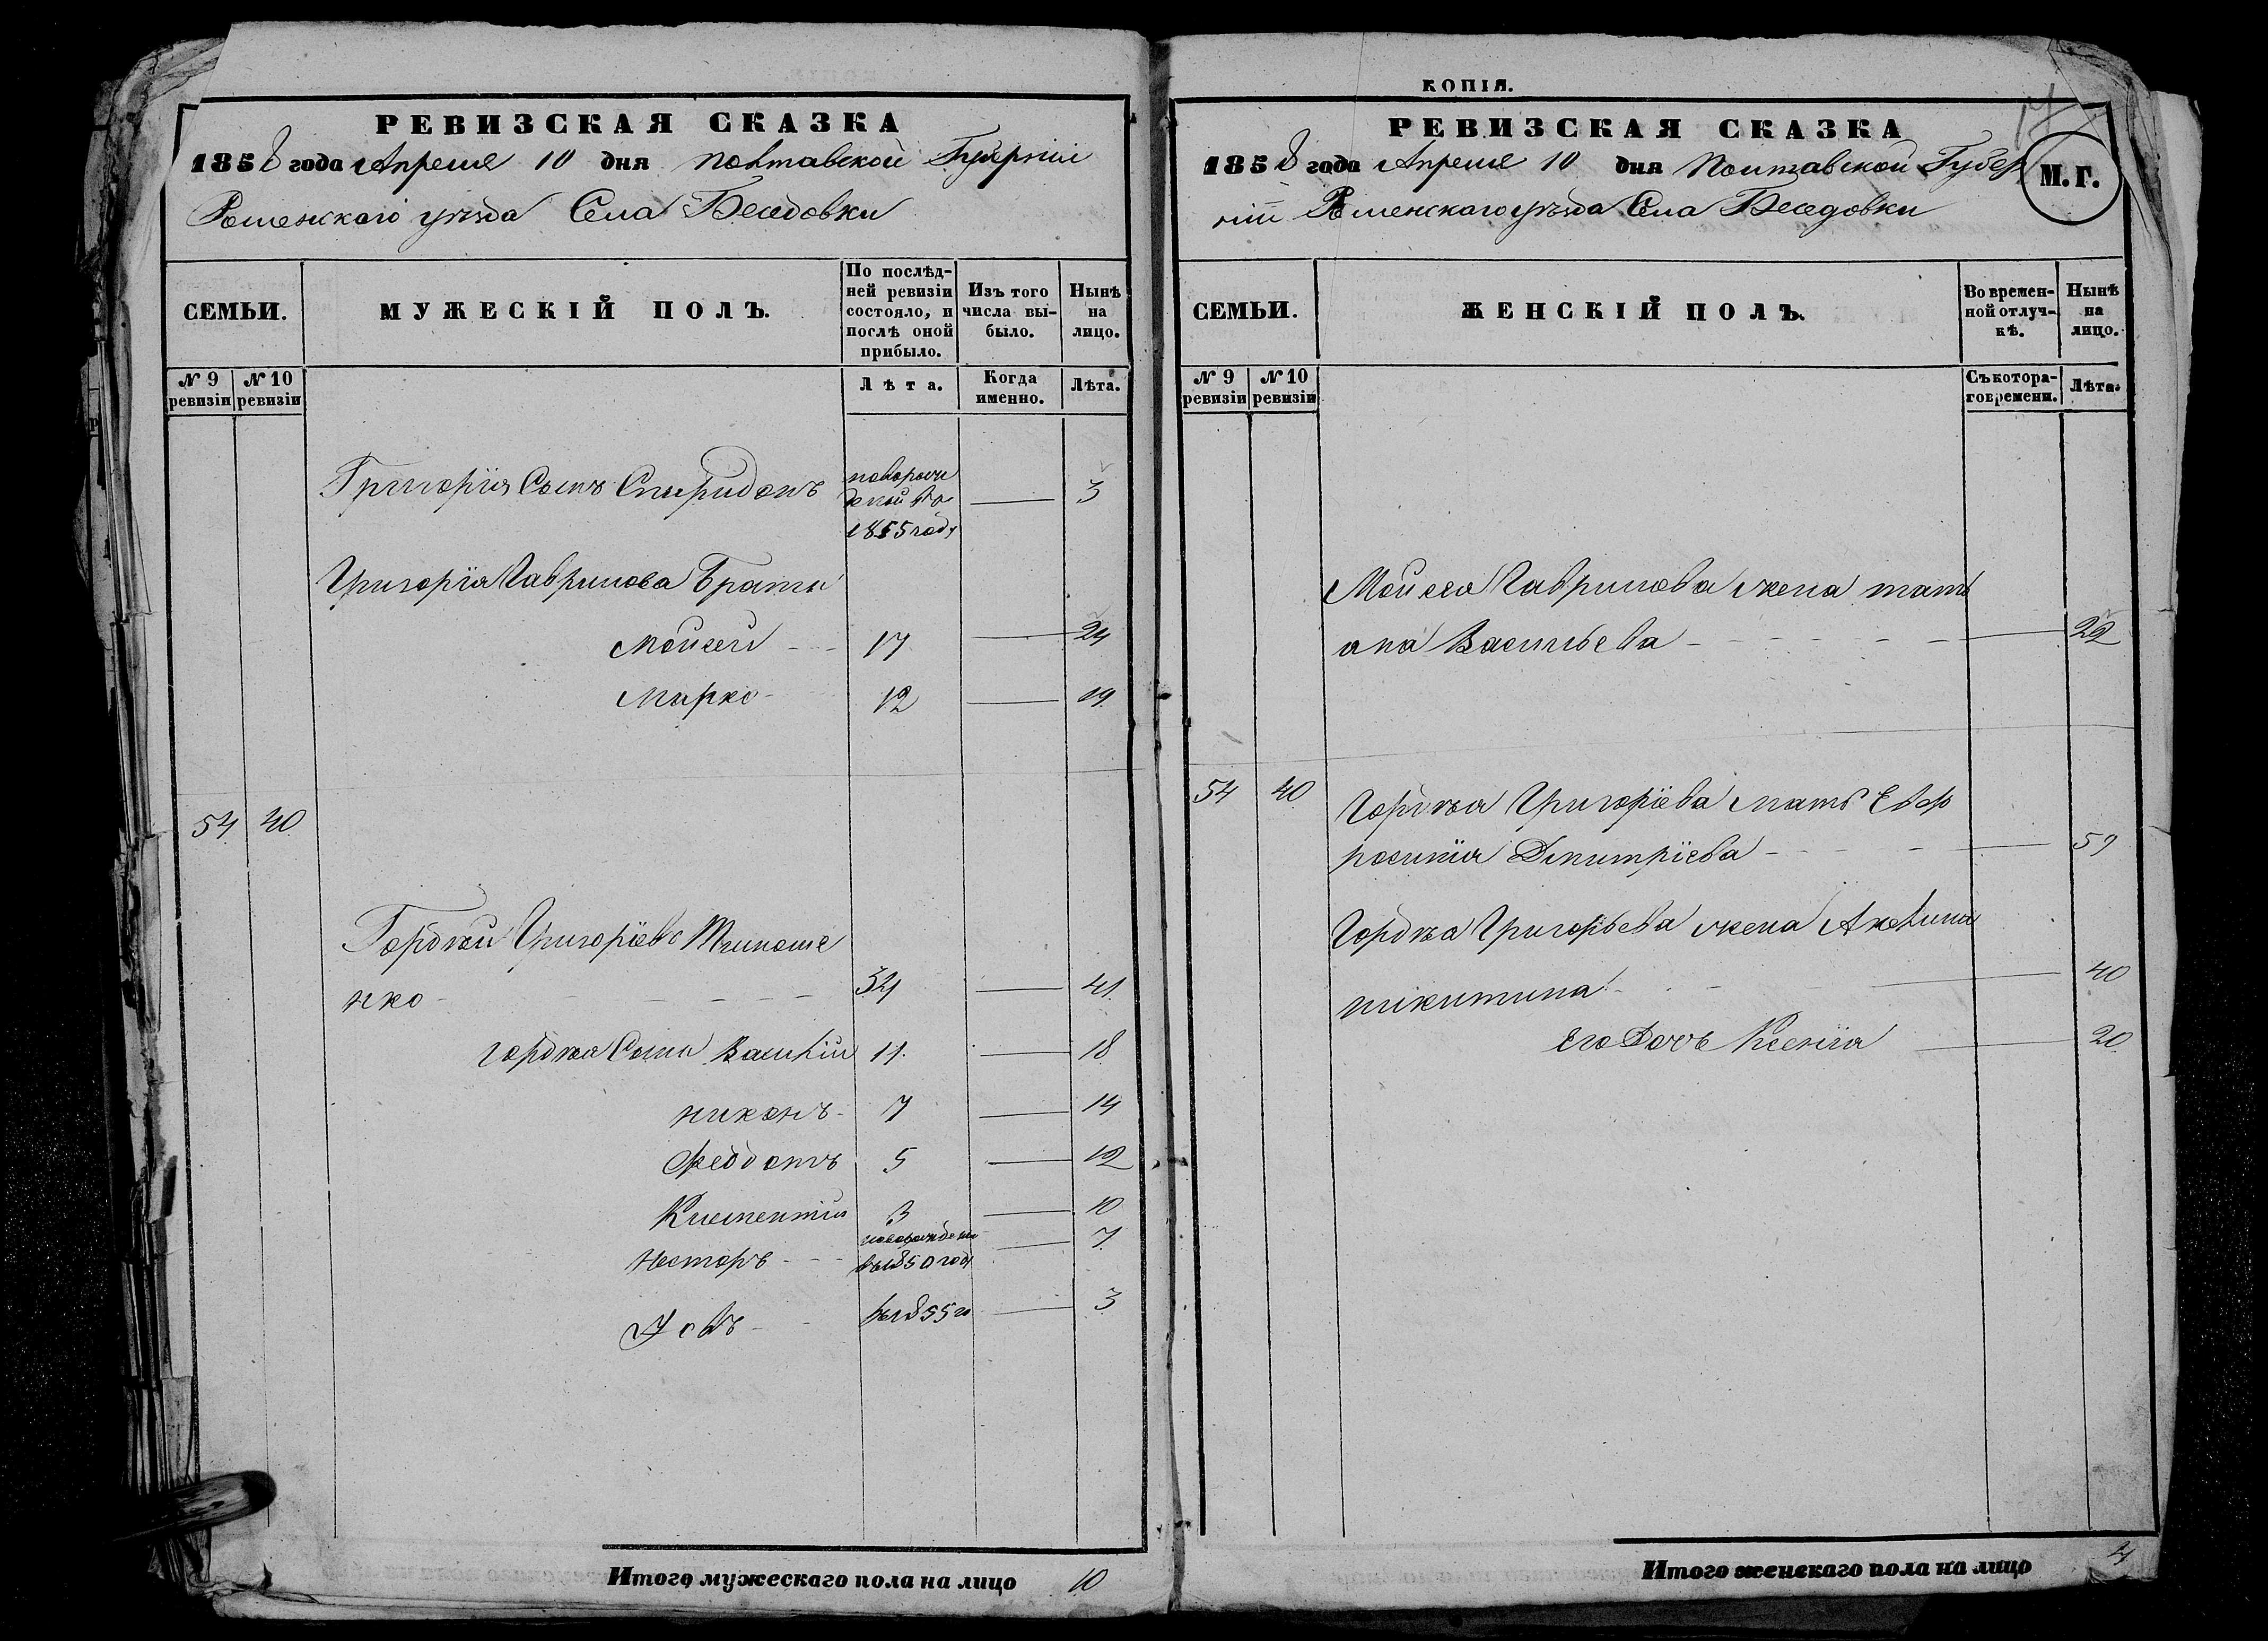 РЕВИЗСКАЯ СКАЗКА
1858 года Апреля 10 дня Полтавской Губернии
Роменского уѣзда Села Беседовки
СЕМЬИ.
МУЖЕСКІЙ ПОЛЪ.
По послѣд-
ней ревизіи
состояло, и
послѣ оной
прибыло.
Изъ того
числа вы-
было.
Нынѣ
на
лицо.
№ 9
ревизіи
№ 10
ревизіи
Лѣта.
Когда
именно.
Лѣта.
Григорія Сынъ Спиридонъ — 3
1855 году
Григорія Гаврилова Браты
Мойсей 17 — 24
Марко 12 — 19
54 40
Гордѣй Григоріевъ
нко 34 — 41
Гордѣя Сыны Василій 11 — 18
Никонъ 7 — 14
Феодотъ 5 — 12
Климентій 3 — 10
Несторъ 1850 году — 7
Іовъ 1855 — 3
Итого мужескаго пола на лицо 10
КОПІЯ.
РЕВИЗСКАЯ СКАЗКА
1858 года Апреля 10 дня Полтавской Губер
ніи Роменскаго уѣзда Села Беседовки
М.Г.
СЕМЬИ.
ЖЕНСКІЙ ПОЛЪ.
Во времен-
ной отлуч-
кѣ.
Нынѣ
на
лицо.
№ 9
ревизіи
№ 10
ревизіи
Съ котора-
го времени.
Лѣта.
Мойсея Гаврилова жена Тать
яна Васильева — 22
54 40 Гордѣя Григоріева мать Евф
росинія Дмитріева — 59
Гордѣя Григорьева жена Акилина
Никитина — 40
Его Дочь Ксенія — 20
Итого женскаго пола на лицо 4